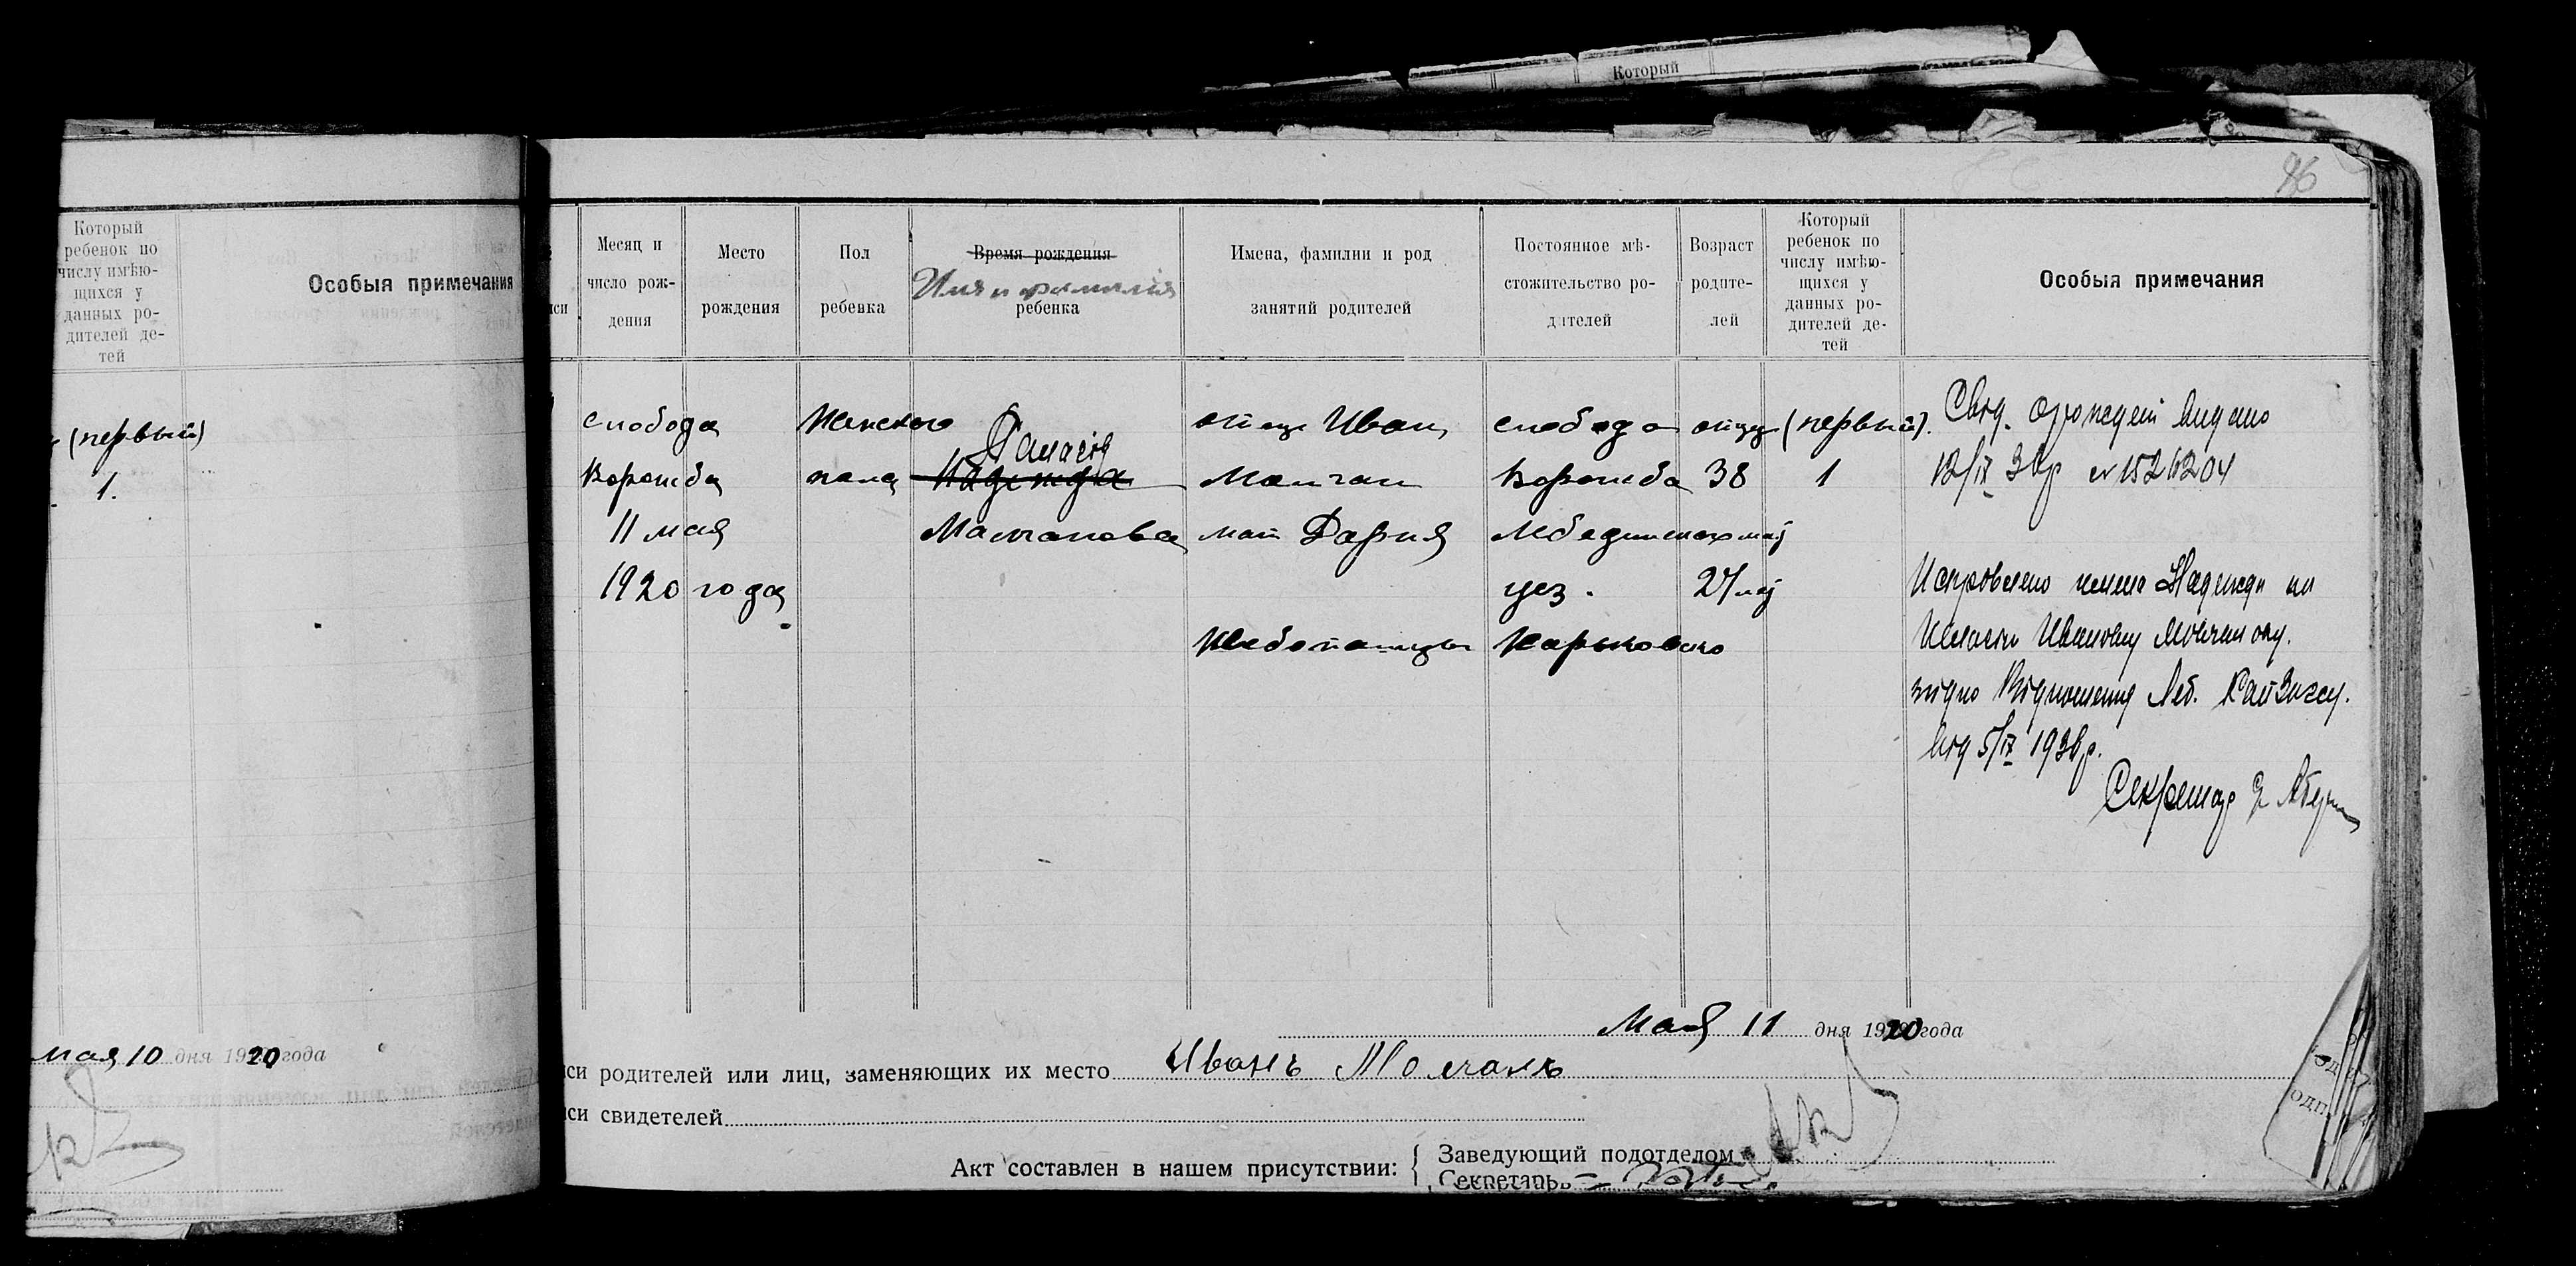 Который
96
Который
ребенок по
числу имѣю-
щихся у
данных ро-
дителей де-
тей
Особыя примечания
(первый)
1.
мая 10 дня 1920 года
Месяц и
число рож-
дения
Место
рождения
Пол
ребенка
Время рождения
Имя и фамилия
ребенка
Имена, фамилии и род
занятий родителей
Постоянное мѣ-
стожительство ро-
дителей
Возраст
родите-
лей
Который
ребенок по
числу имѣю-
щихся у
данных ро-
дителей де-
тей
Особыя примечания
слобода
Ворожба
11 мая
1920 года
Женского
пола
Надежда
Молчанова
отец Иван
Молчан
мат Дария
Хлебопашцы
слобода
Ворожба
Лебединск
уез.
Харьковско
отцу
38
мат
27 лет
(первый).
1
Свід. о рожден видано
12/IX 38р № 152204
Исправлено имена Надежди на
Ивановну Молчанову.
згідно Відношення Леб.
від 5/IX 1938р.
Секретар
Мая 11 дня 1920 года
си родителей или лиц, заменяющих их место Иванъ Молчанъ
си свидетелей
Акт составлен в нашем присутствии:
Заведующий подотделом
Секретарь